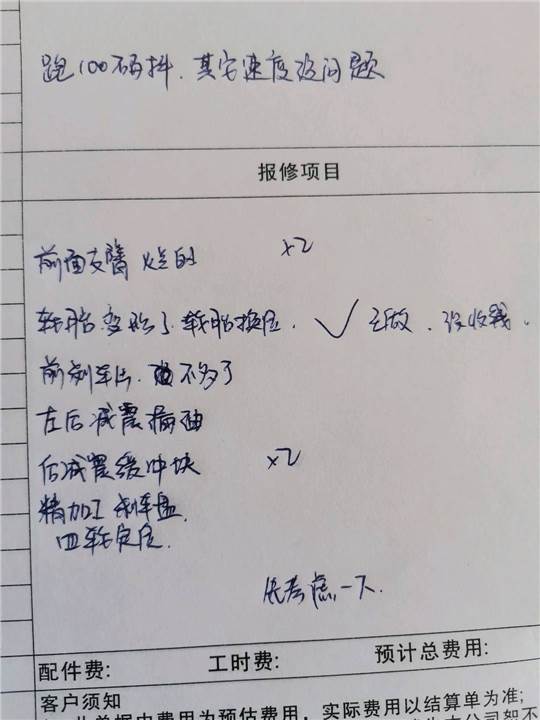 跑100码抖.其它速度没问题
报修项目
前面支臂 烂的 x2
轮胎变形了.轮胎换位. ✓ 已做.没收钱.
前刹车片. 不多了
左后减震漏油
后减震缓冲块 x2
精加工刹车盘.
四轮定位.
考虑一下.
配件费: 工时费: 预计总费用:
客户须知
为预估费用，实际费用以结算单为准;